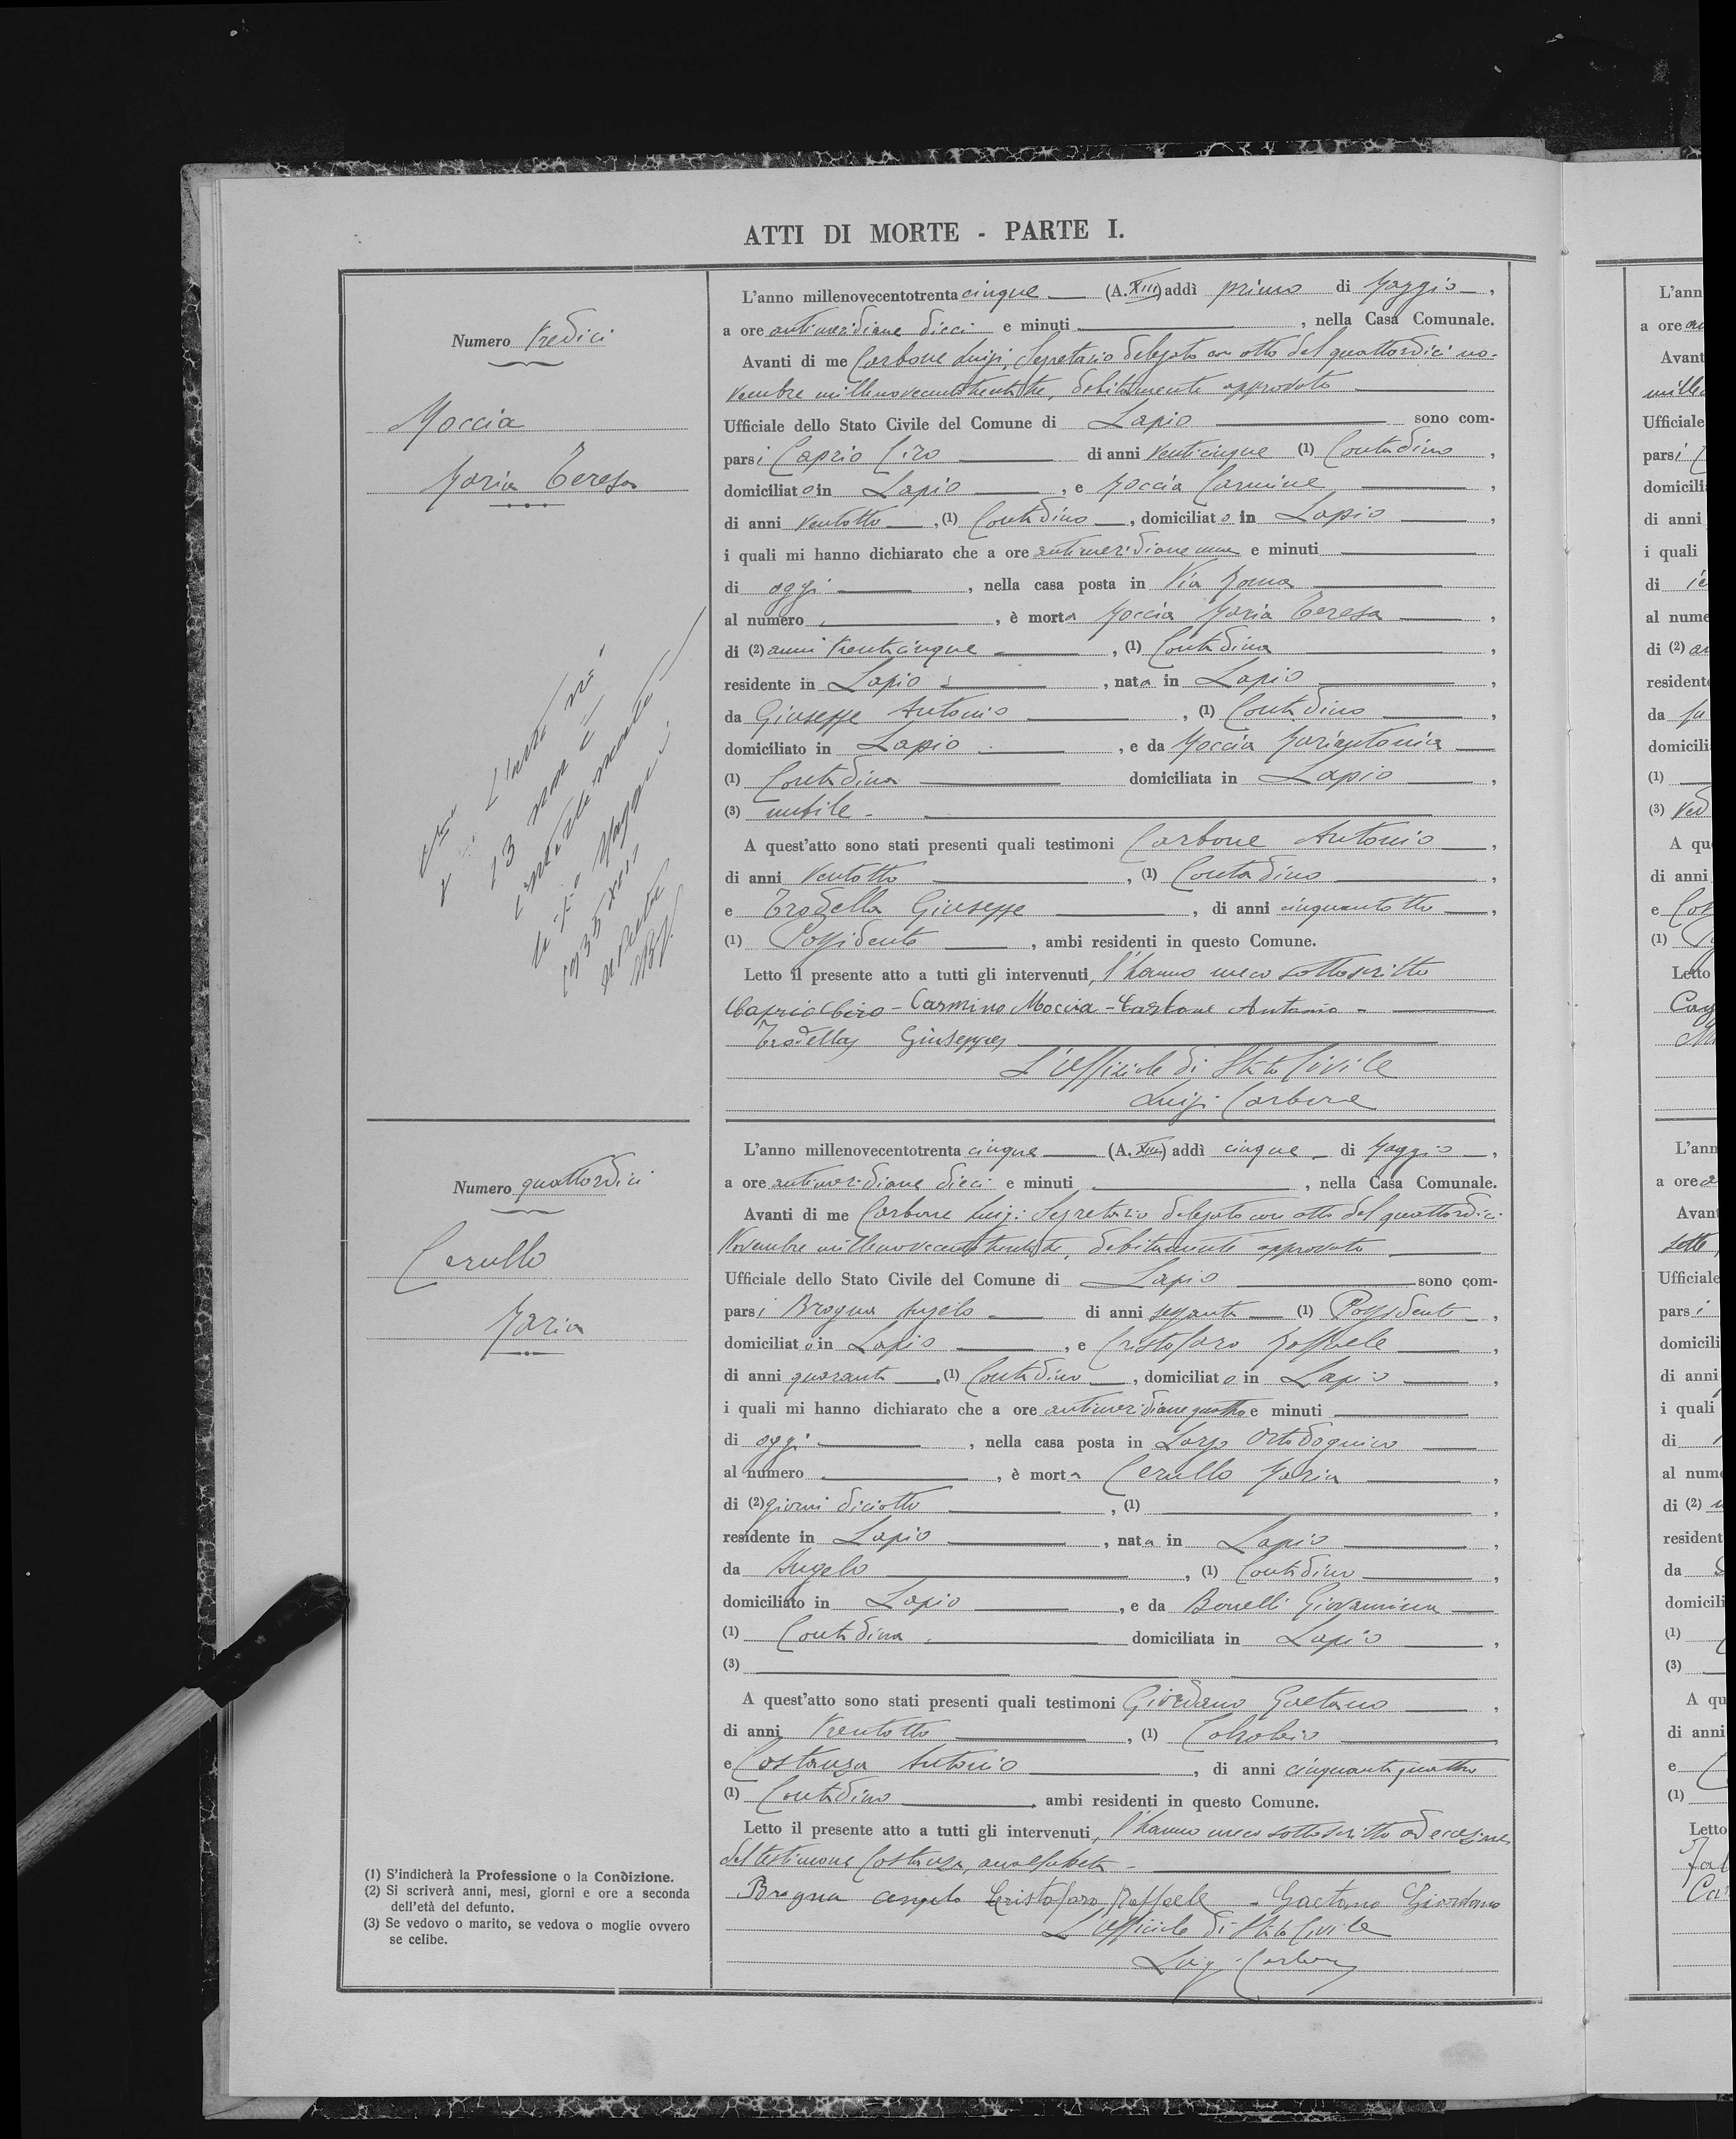 ATTI DI MORTE - PARTE I.
Numero tredici
Moccia
Maria Teresa
L'anno millenovecentotrenta cinque (A. XIII) addì primo di Maggio,
a ore antimeridiane dieci e minuti , nella Casa Comunale.
Avanti di me Carbone Luigi, Segretario delegato con atto del quattordici no-
vembre millenovecentotrentatre, debitamente approvato
Ufficiale dello Stato Civile del Comune di Lapio sono com-
parsi Caprio Ciro di anni venticinque (1) Contadino,
domiciliato in Lapio, e Moccia Carmine,
di anni ventotto, (1) Contadino, domiciliato in Lapio,
i quali mi hanno dichiarato che a ore antimeridiane una e minuti
di oggi, nella casa posta in Via Roma
al numero , è morta Moccia Maria Teresa,
di (2) anni trentacinque, (1) Contadina,
residente in Lapio, nata in Lapio,
da Giuseppe Antonio, (1) Contadino,
domiciliato in Lapio, e da Moccia Mariantonia
(1) Contadina domiciliata in Lapio,
(3) nubile -
A quest'atto sono stati presenti quali testimoni Carbone Antonio,
di anni ventotto, (1) Contadino,
e Trodella Giuseppe, di anni cinquantotto,
(1) Possidente, ambi residenti in questo Comune.
Letto il presente atto a tutti gli intervenuti, l'hanno meco sottoscritto
Caprio Ciro - Carmino Moccia - Carbone Antonio -
Trodella Giuseppe
L'Ufficiale di Stato Civile
Luigi Carbone
L'atto n.
13
Maggio
1935 XIII
Numero quattordici
Cerullo
Maria
L'anno millenovecentotrenta cinque (A. XIII) addì cinque di Maggio,
a ore antimeridiane dieci e minuti , nella Casa Comunale.
Avanti di me Carbone Luigi Segretario delegato con atto del quattordici
Novembre millenovecentotrentatre, debitamente approvato
Ufficiale dello Stato Civile del Comune di Lapio sono com-
parsi Brogna Angelo di anni sessanta (1) Possidente,
domiciliato in Lapio, e Cristofaro Raffaele,
di anni quaranta, (1) Contadino, domiciliato in Lapio,
i quali mi hanno dichiarato che a ore antimeridiane quattro e minuti
di oggi, nella casa posta in Largo Ortodognico
al numero , è morta Cerullo Maria,
di (2) giorni diciotto, (1) ,
residente in Lapio, nata in Lapio,
da Angelo, (1) Contadino,
domiciliato in Lapio, e da Bonelli Giovannina
(1) Contadina domiciliata in Lapio,
(3)
A quest'atto sono stati presenti quali testimoni Giordano Gaetano,
di anni trentotto, (1) Calzolaio
e Costanza Antonio, di anni cinquantaquattro
(1) Contadino ambi residenti in questo Comune.
Letto il presente atto a tutti gli intervenuti, l'hanno meco sottoscritto ad eccezione
del testimone Costanza, analfabeta -
Brogna Angelo Cristofaro Raffaele - Gaetano Giordano
L'Ufficiale di Stato Civile
Luigi Carbone
(1) S'indicherà la Professione o la Condizione.
(2) Si scriverà anni, mesi, giorni e ore a seconda
dell'età del defunto.
(3) Se vedovo o marito, se vedova o moglie ovvero
se celibe.